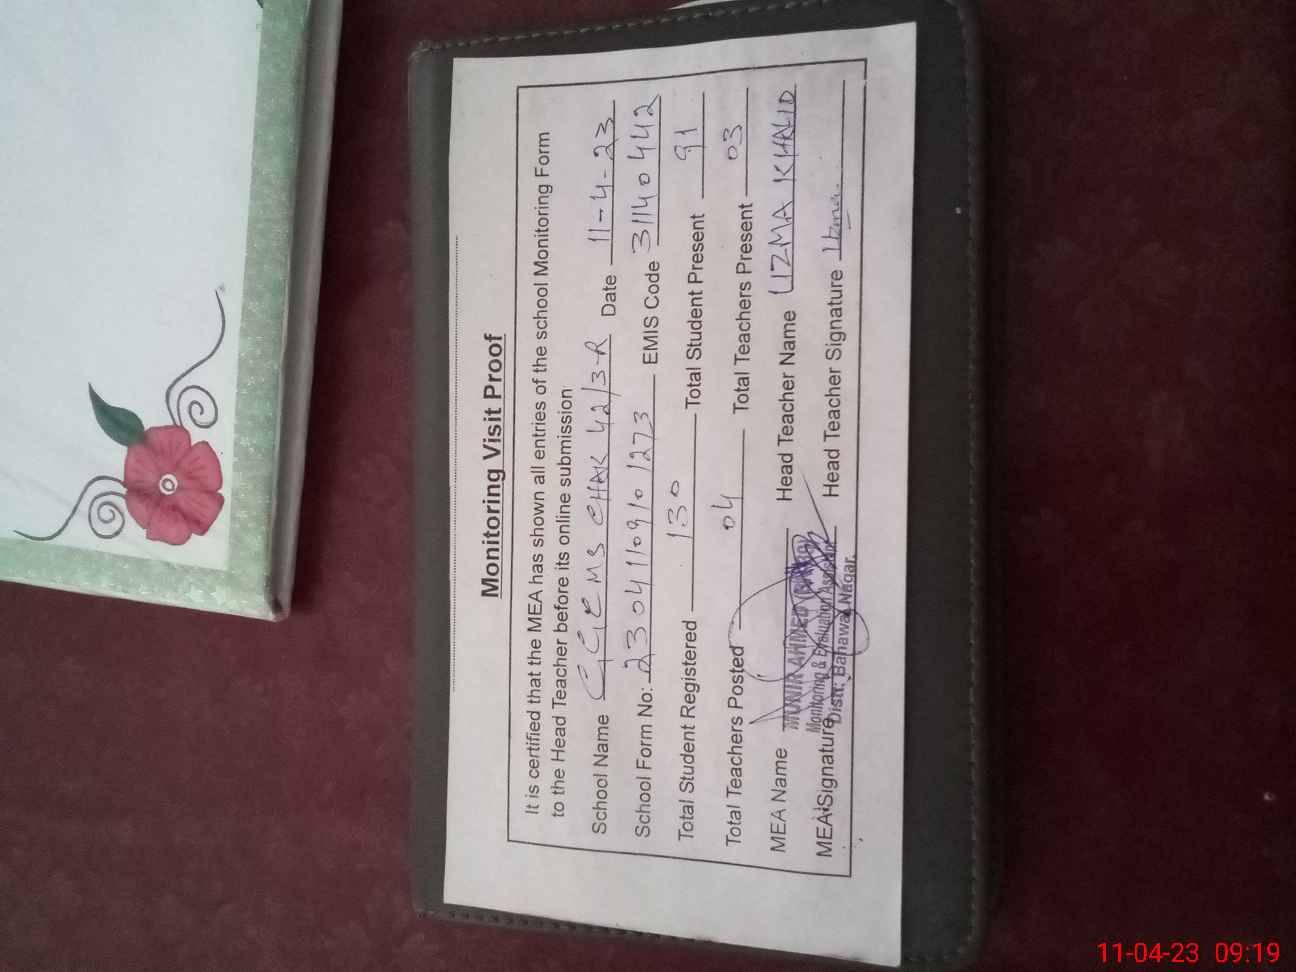 Monitoring Visit Proof
It is certified that the MEA has shown all entries of the school Monitoring Form
to the Head Teacher before its online submission
School Name GGEMS CHAK 42/3-R Date 11-4-23
School Form No: 23041109101273 EMIS Code 31140442
Total Student Registered 130 Total Student Present 91
Total Teachers Posted 04 Total Teachers Present 03
MEA Name MUNIR AHMED Head Teacher Name UZMA KHALID
Monitoring & Evaluation Assistant
MEA Signature Head Teacher Signature Uzma.
Distt; Bahawal Nagar.
11-04-23 09:19